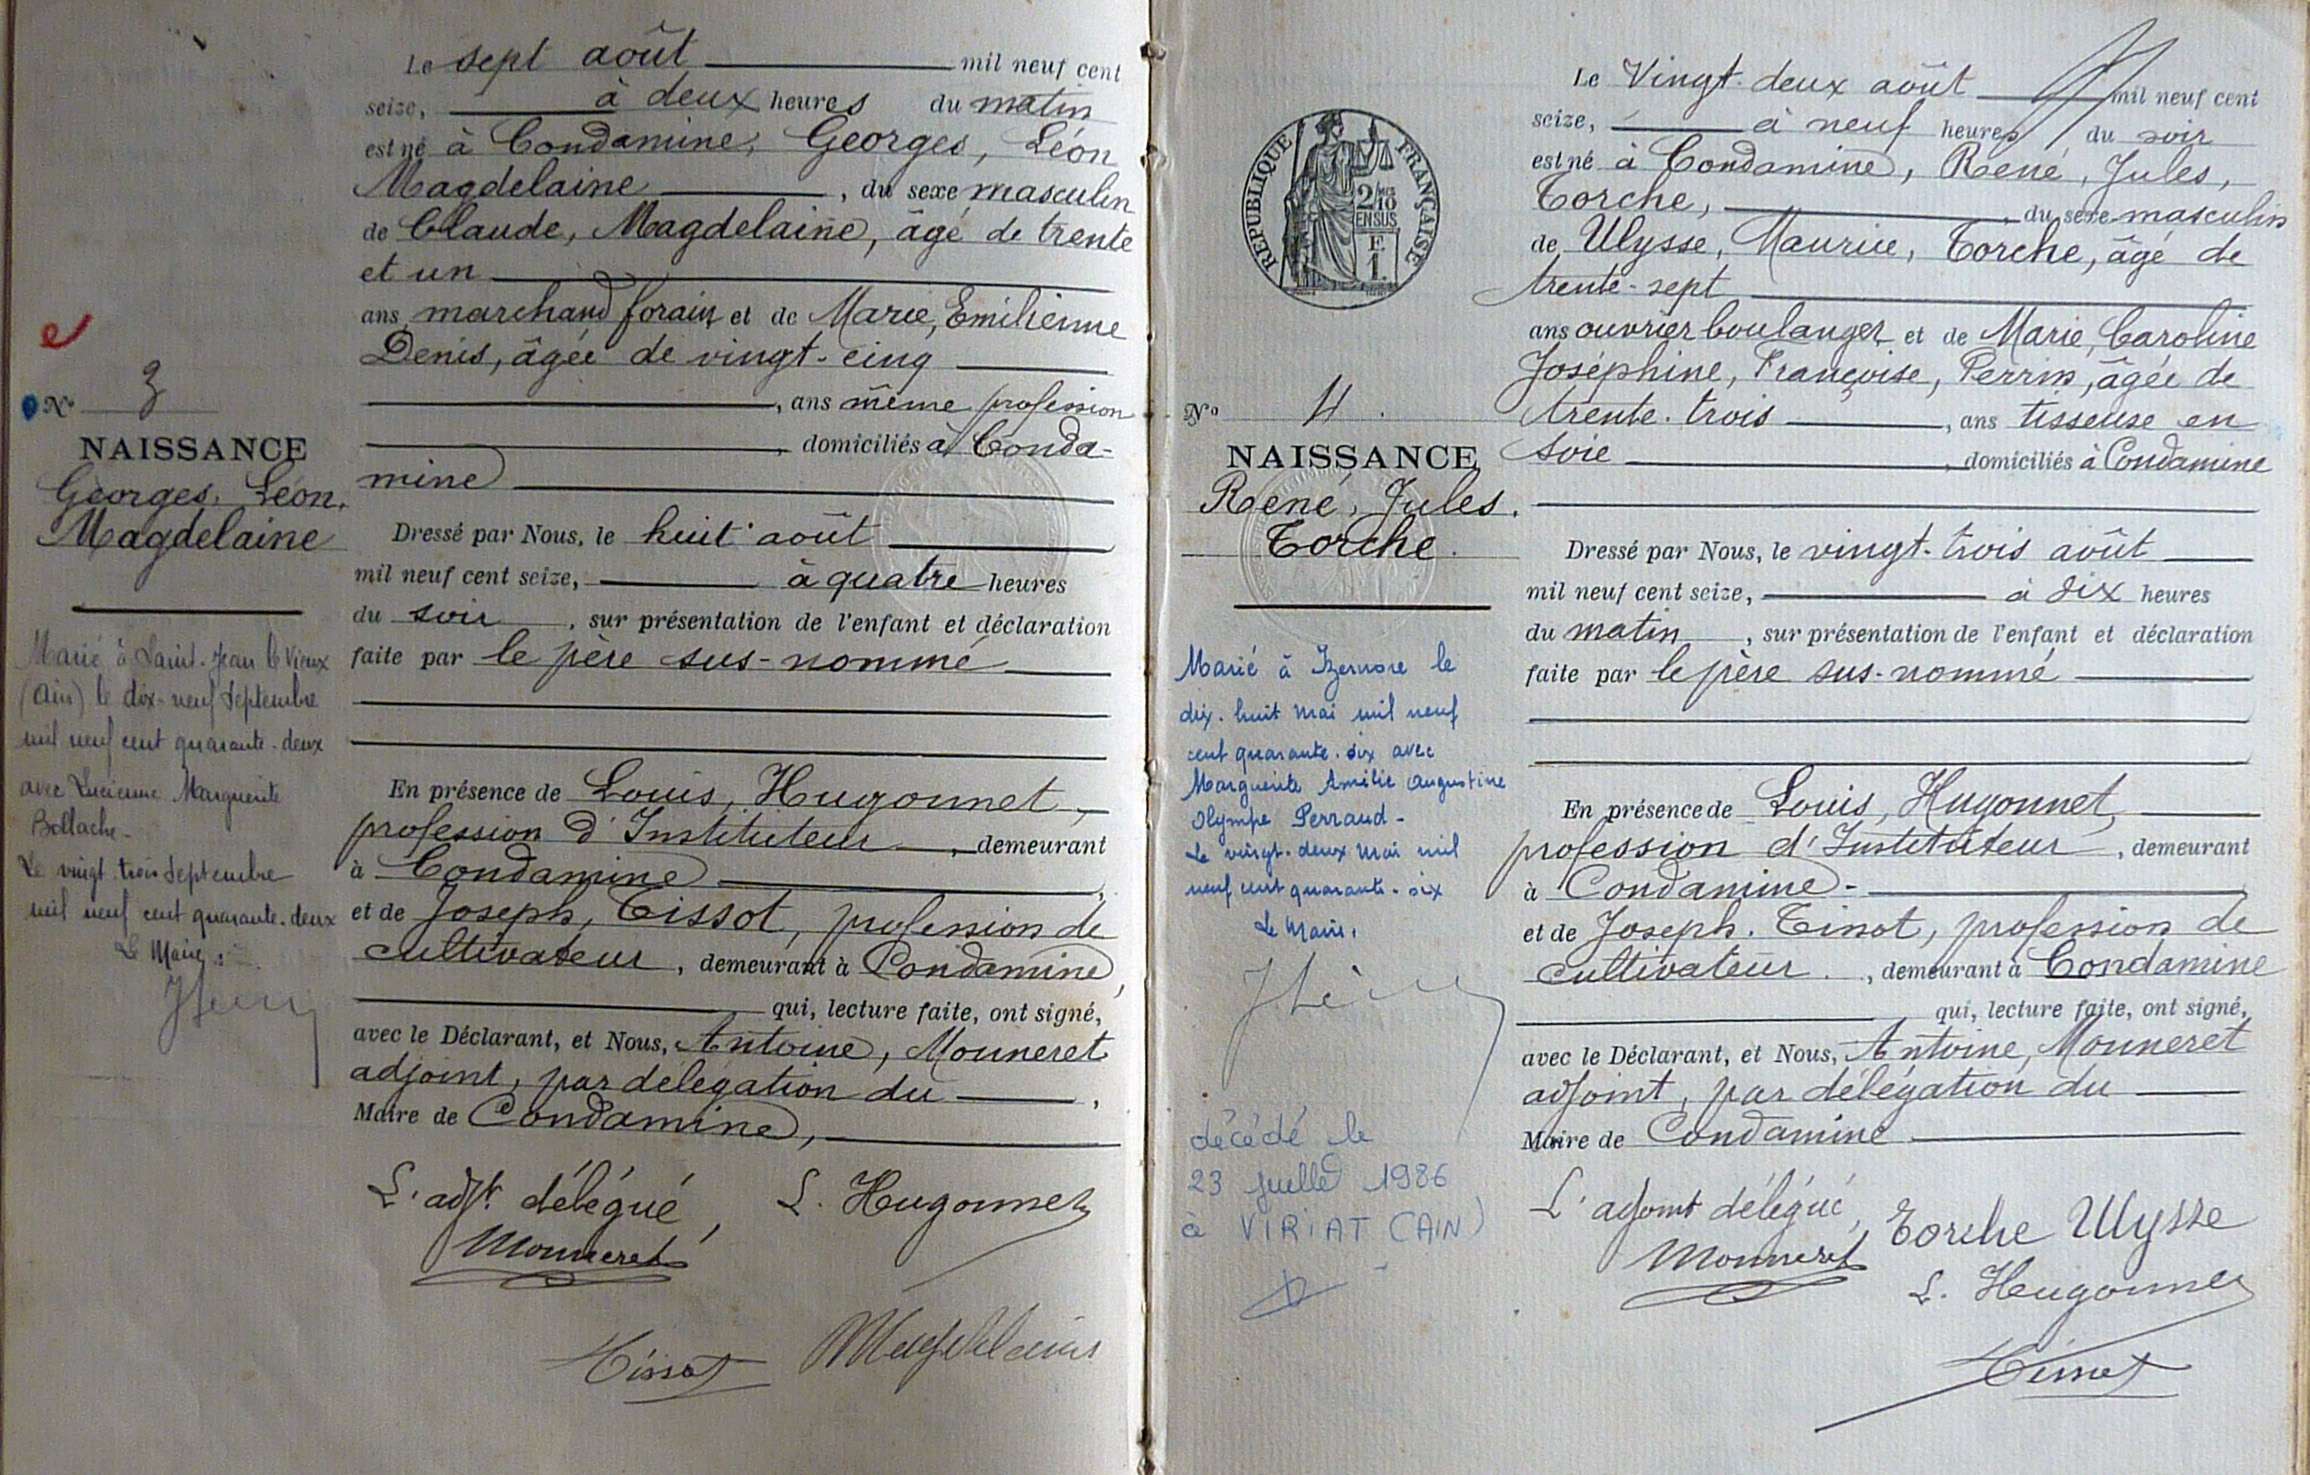 Le sept août mil neuf cent
seize, à deux heures du matin
est né à Condamine, Georges, Léon
Magdelaine, du sexe masculin
de Claude, Magdelaine, âgé de trente
et un
ans marchand forain et de Marie, Emilienne
Denis, âgée de vingt-cinq
, ans même profession
, domiciliés à Conda-
mine
Dressé par Nous, le huit août
mil neuf cent seize, à quatre heures
du soir, sur présentation de l'enfant et déclaration
faite par le père sus-nommé
En présence de Louis, Hugonnet,
profession d'Instituteur, demeurant
à Condamine,
et de Joseph, Tissot, profession de
cultivateur, demeurant à Condamine,
qui, lecture faite, ont signé,
avec le Déclarant, et Nous, Antoine, Monneret
adjoint, par délégation du,
Maire de Condamine,
L'adjt délégué, L. Hugonnet
Monneret
Tissot Magdelaine
No 3
NAISSANCE
Georges, Léon,
Magdelaine
Marié à Saint-Jean le Vieux
(Ain) le dix-neuf Septembre
mil neuf cent quarante-deux
avec Lucienne Marguerite
Bollache -
Le vingt trois Septembre
mil neuf cent quarante-deux
Le Maire :
RÉPUBLIQUE FRANÇAISE
2/10
EN SUS
F.
1.
No 4.
NAISSANCE
René, Jules.
Torche.
Marié à Izernore le
dix-huit mai mil neuf
cent quarante-six avec
Marguerite Amélie Augustine
Olympe Perraud -
Le vingt-deux mai mil
neuf cent quarante-six
Le Maire,
décédé le
23 juillet 1986
à VIRIAT (AIN)
Le Vingt-deux août mil neuf cent
seize, à neuf heures du soir
est né à Condamine, René, Jules,
Torche, du sexe masculin
de Ulysse, Maurice, Torche, âgé de
trente-sept
ans ouvrier boulanger et de Marie, Caroline
Joséphine, Françoise, Perrin, âgée de
trente-trois, ans tisseuse en
soie, domiciliés à Condamine
Dressé par Nous, le vingt-trois août
mil neuf cent seize, à dix heures
du matin, sur présentation de l'enfant et déclaration
faite par le père sus-nommé
En présence de Louis, Hugonnet,
profession d'Instituteur, demeurant
à Condamine -
et de Joseph, Tissot, profession de
cultivateur, demeurant à Condamine
qui, lecture faite, ont signé,
avec le Déclarant, et Nous, Antoine, Monneret
adjoint, par délégation du
Maire de Condamine
L'adjoint délégué, Torche Ulysse
Monneret
L. Hugonnet
Tissot